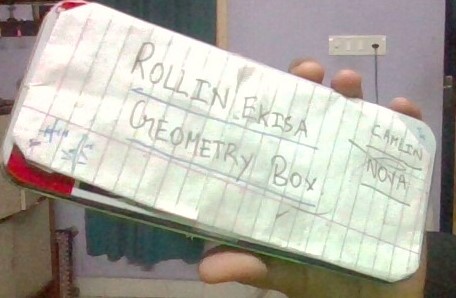 ROLLIN EKISA
GEOMETRY BOX
CAMLIN
NOVA